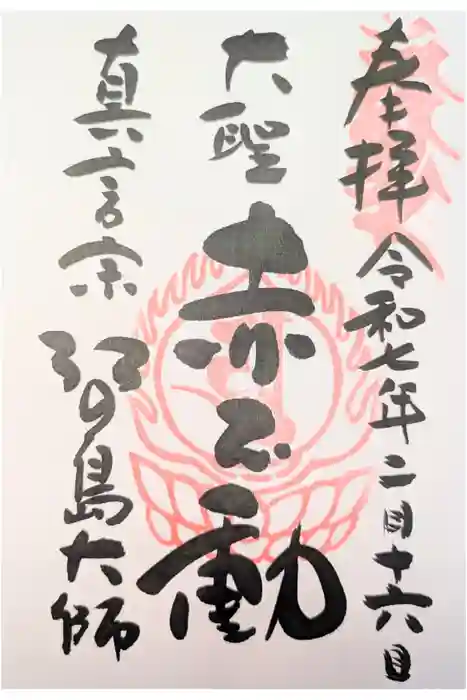 奉拝 令和七年二月十六日
大聖 赤不動
真言宗 江の島大師